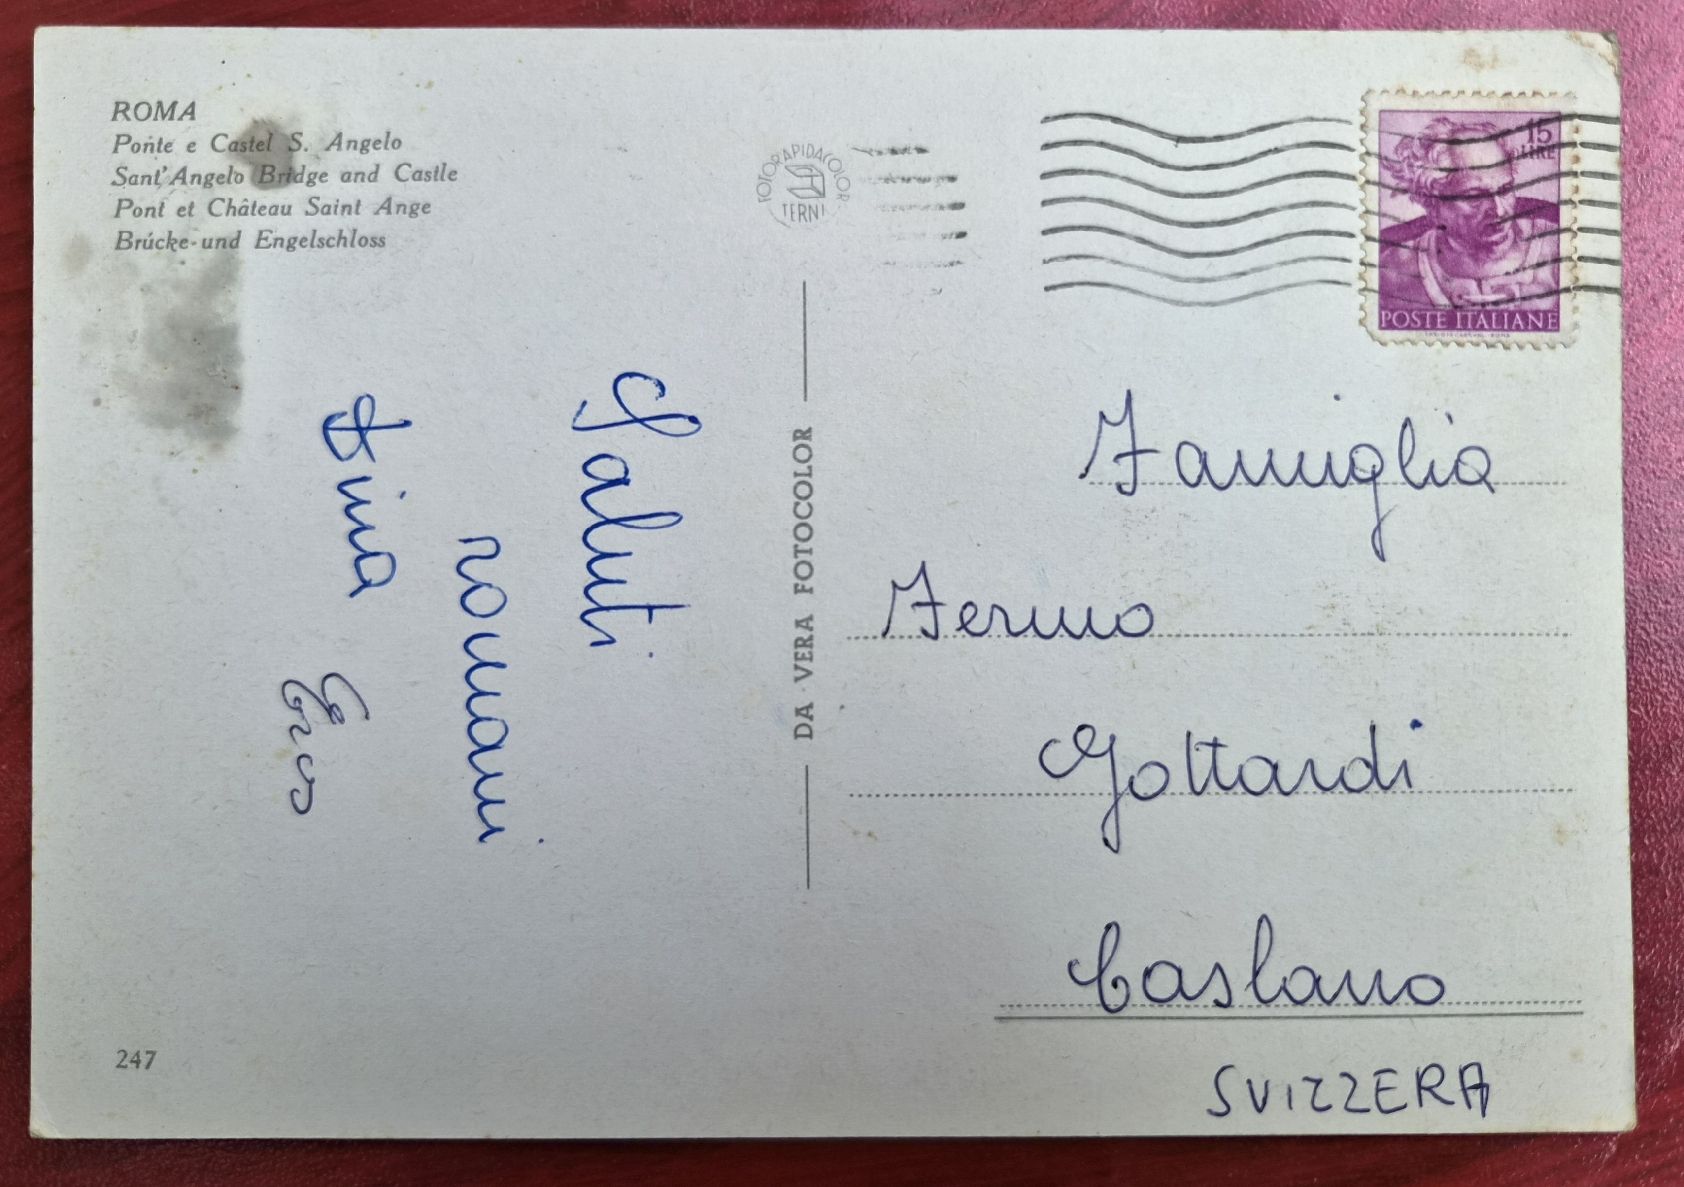 ROMA
Ponte e Castel S. Angelo
Sant'Angelo Bridge and Castle
Pont et Château Saint Ange
Brücke und Engelschloss
Saluti
romani
Dina
Eros
247
FOTORAPIDACOLOR
TERNI
DA VERA FOTOCOLOR
15
LIRE
POSTE ITALIANE
Famiglia
Fermo
Gottardi
Caslano
SVIZZERA